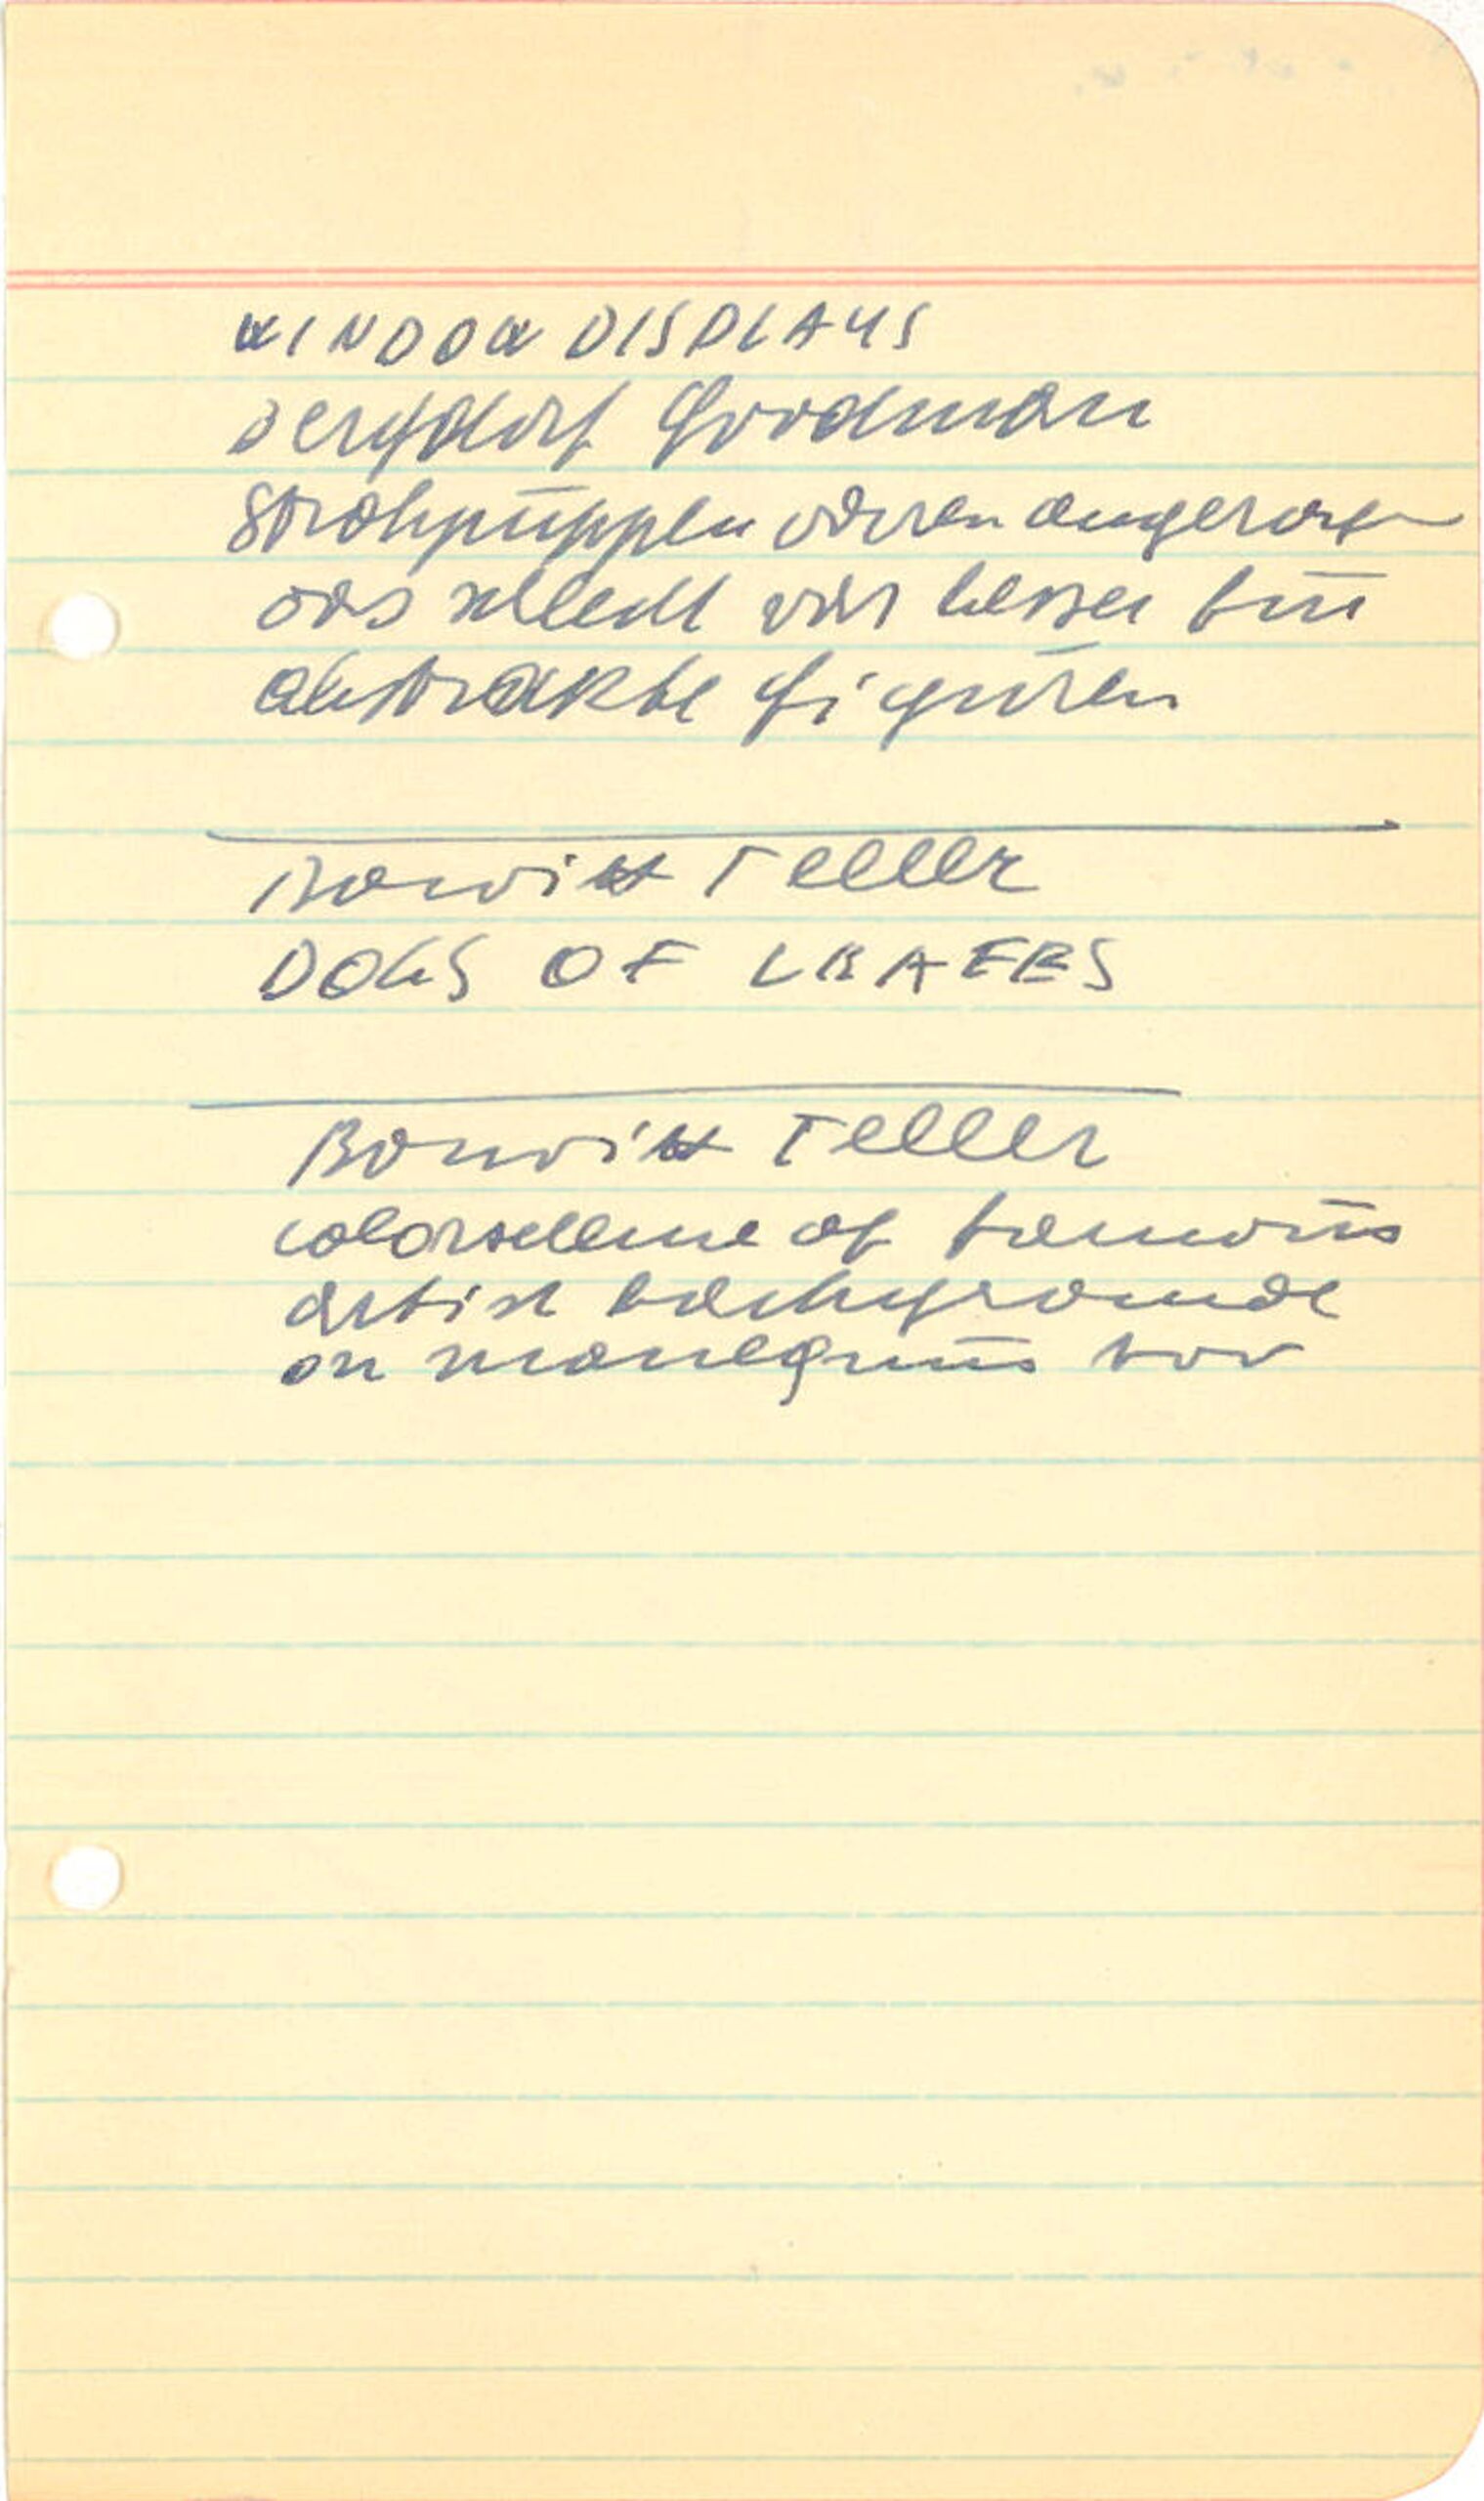 WINDOW DISPLAYS
Bergdorf Goodman
Strohpuppen waren angezogen
das schlecht war besser für
abstrakte figuren
Bonwitt Teller
DOGS OF LEAFES
Bonwitt Teller
colorscheme of famous
artist background
on manequins